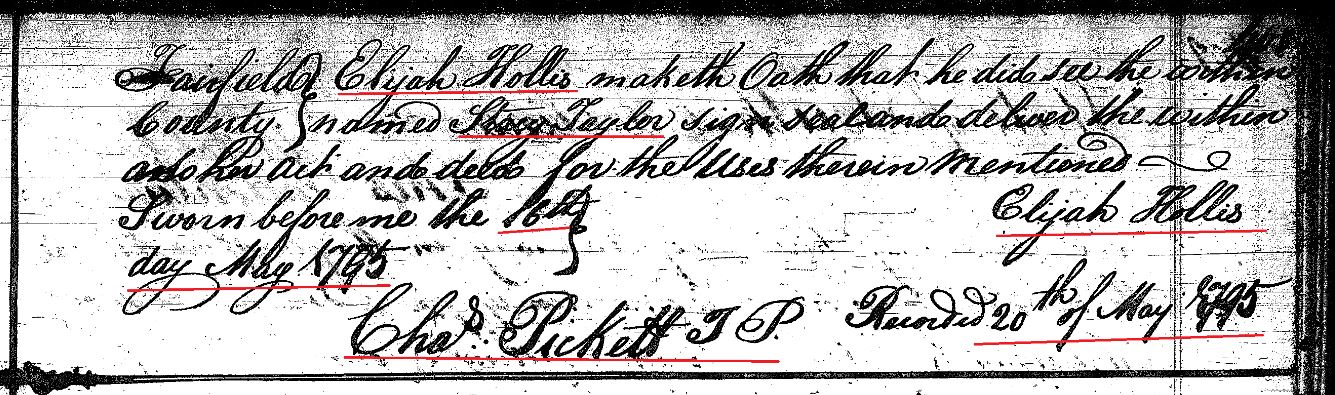 Fairfield } Elijah Hollis maketh Oath that he did see the within
County } named Taylor sign seal and deliver the within
as her act and deed for the Uses therein Mentioned
Sworn before me the 16th } Elijah Hollis
day May 1795
Chas. Pickett J P. Recorded 20th of May 1795